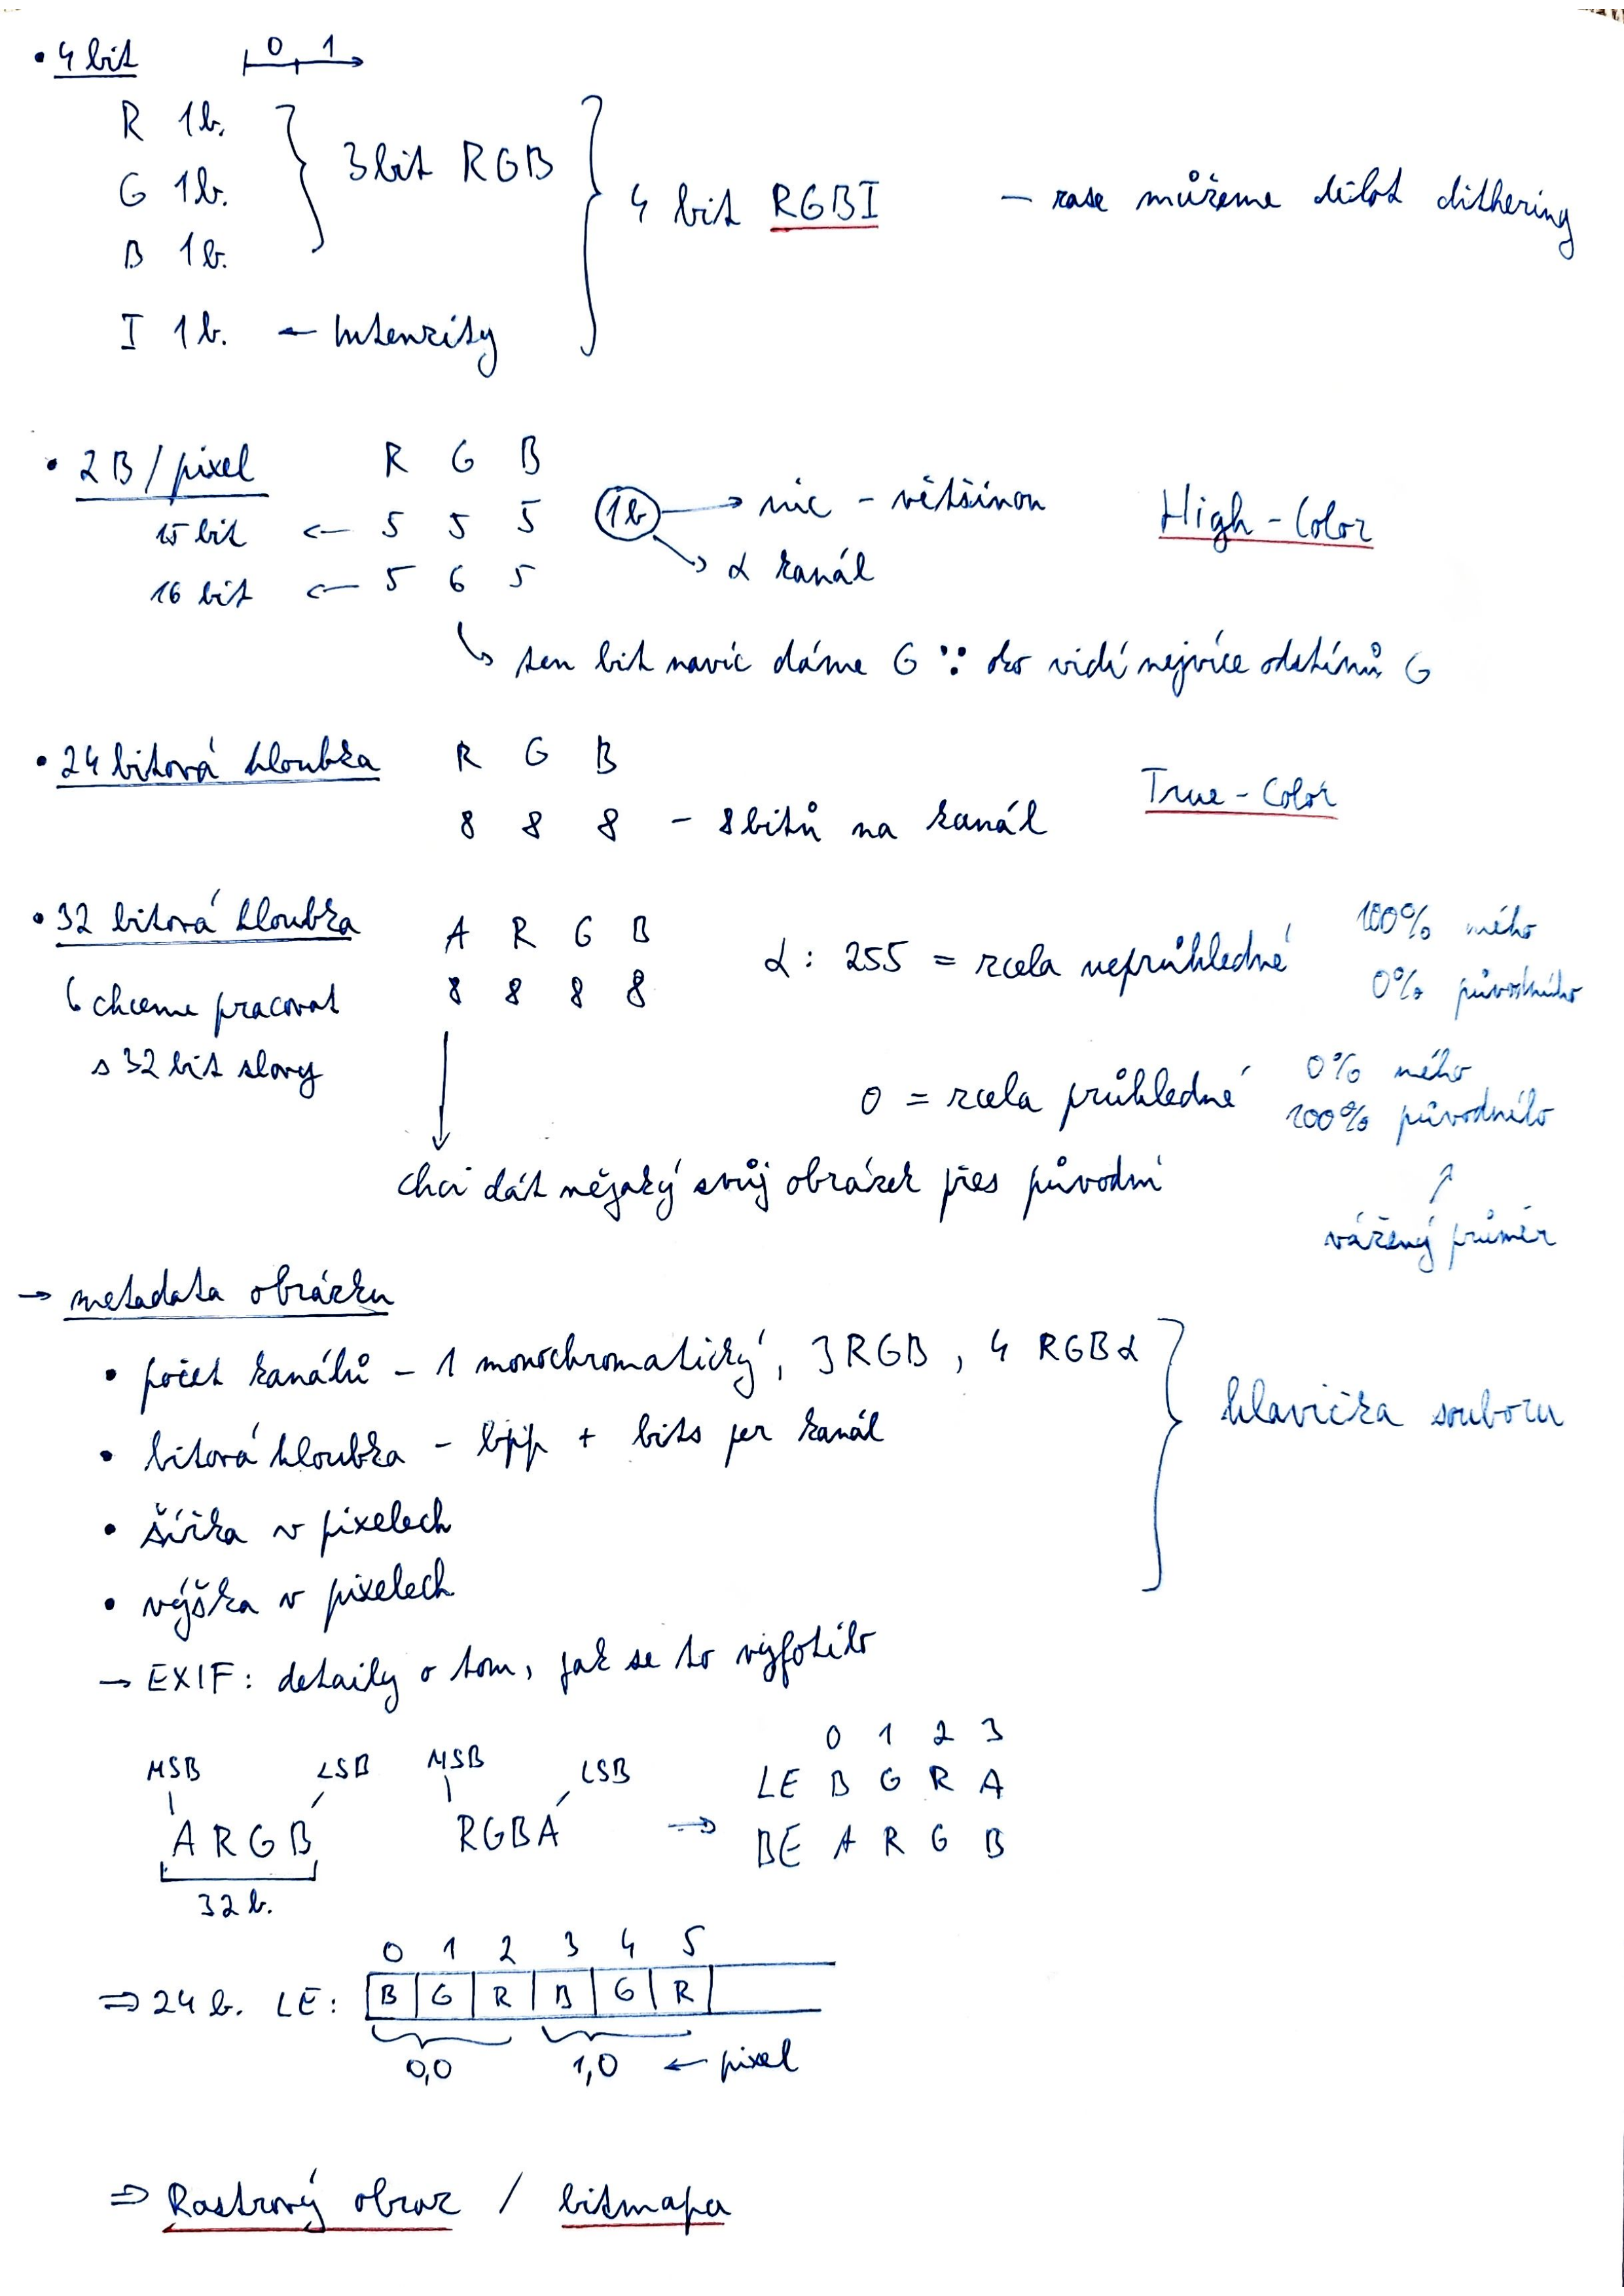 • 4 bit 0 1
R 1b.
G 1b.
B 1b.
3 bit RGB
I 1b. ← Intenzity
4 bit RGBI – zase můžeme dělat dithering
• 2 B / pixel R G B
15 bit ← 5 5 5 1b → nic – většinou
→ α kanál
High-Color
16 bit ← 5 6 5
↳ ten bit navíc dáme G ∵ oko vidí nejvíce odstínů G
• 24 bitová hloubka R G B
8 8 8 – 8 bitů na kanál
True-Color
• 32 bitová hloubka A R G B
8 8 8 8
chceme pracovat
s 32 bit slovy
α : 255 = zcela neprůhledné 100% mého
0% původního
0 = zcela průhledné 0% mého
100% původního
chci dát nějaký svůj obrázek přes původní
vážený průměr
→ metadata obrázku
• počet kanálů – 1 monochromatický, 3 RGB, 4 RGBα
• bitová hloubka – bpp + bits per kanál
• šířka v pixelech
• výška v pixelech
hlavička souboru
→ EXIF: detaily o tom, jak se to vyfotilo
MSB LSB MSB LSB
A R G B RGBA ⇒
32 b.
0 1 2 3
LE B G R A
BE A R G B
0 1 2 3 4 5
⇒ 24 b. LE: B G R B G R
0,0 1,0 ← pixel
⇒ Rastrový obraz / bitmapa